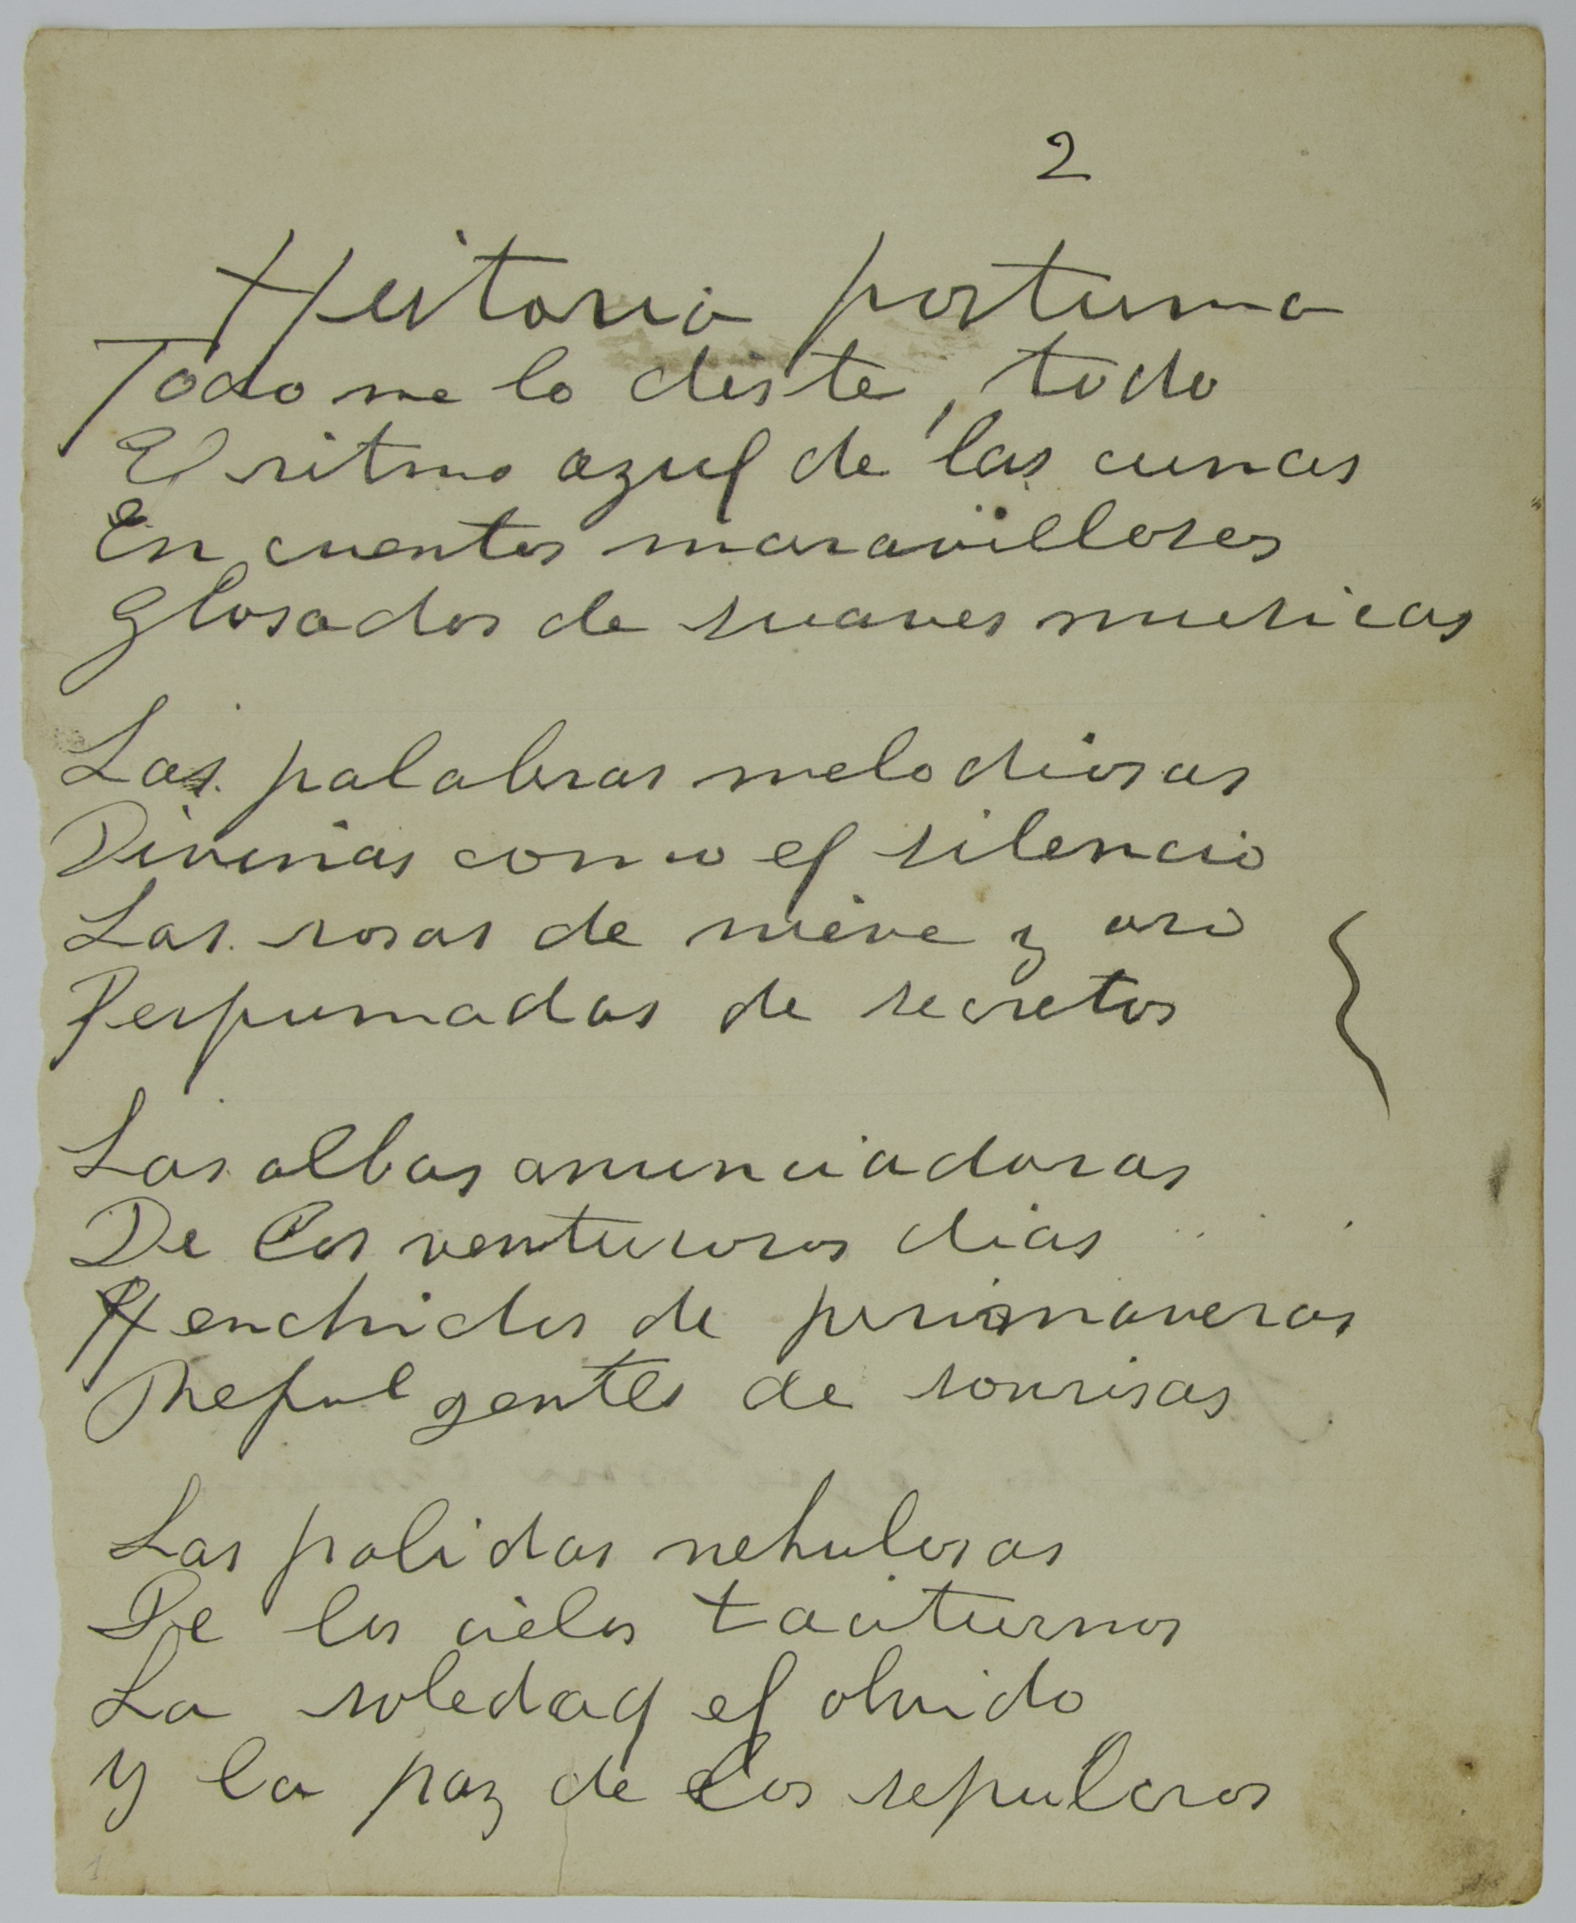 2
Historia postuma
Todo me lo diste, todo
El ritmo azul de las cunas
En cuentos maravillosos
Glosados de suaves musicas
Las palabras melodiosas
Divinas como el silencio
Las rosas de nieve y oro
Perfumadas de secretos
Las albas anunciadoras
De los venturosos dias
Henchidos de primaveras
Refulgentes de sonrisas
Las palidas nebulosas
De los cielos taciturnos
La soledad el olvido
y la paz de los sepulcros